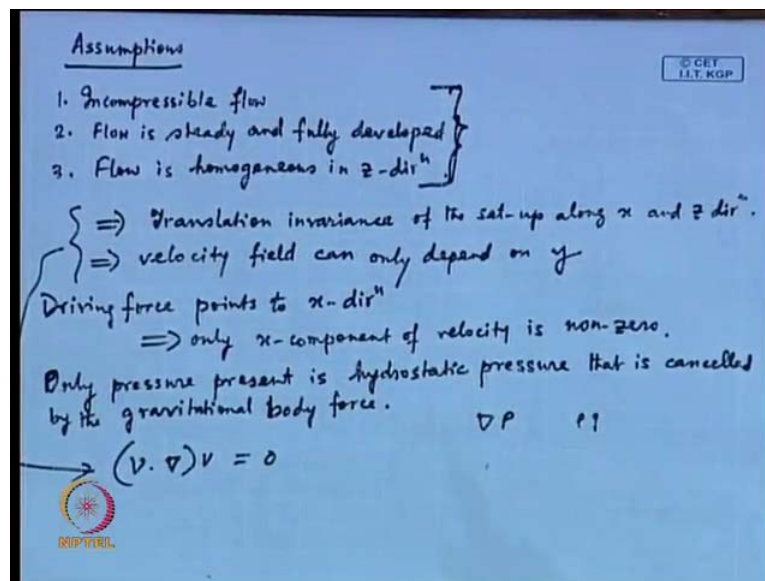 Assumptions
© CET
I.I.T. KGP
1. Incompressible flow
2. Flow is steady and fully developed
3. Flow is homogeneous in z-dirⁿ.
⇒ Translation invariance of the set-up along x and z dirⁿ.
⇒ velocity field can only depend on y
Driving force points to x-dirⁿ
⇒ only x-component of velocity is non-zero.
Only pressure present is hydrostatic pressure that is cancelled
by the gravitational body force. ∇P ρg
(v.∇)v = 0
NPTEL